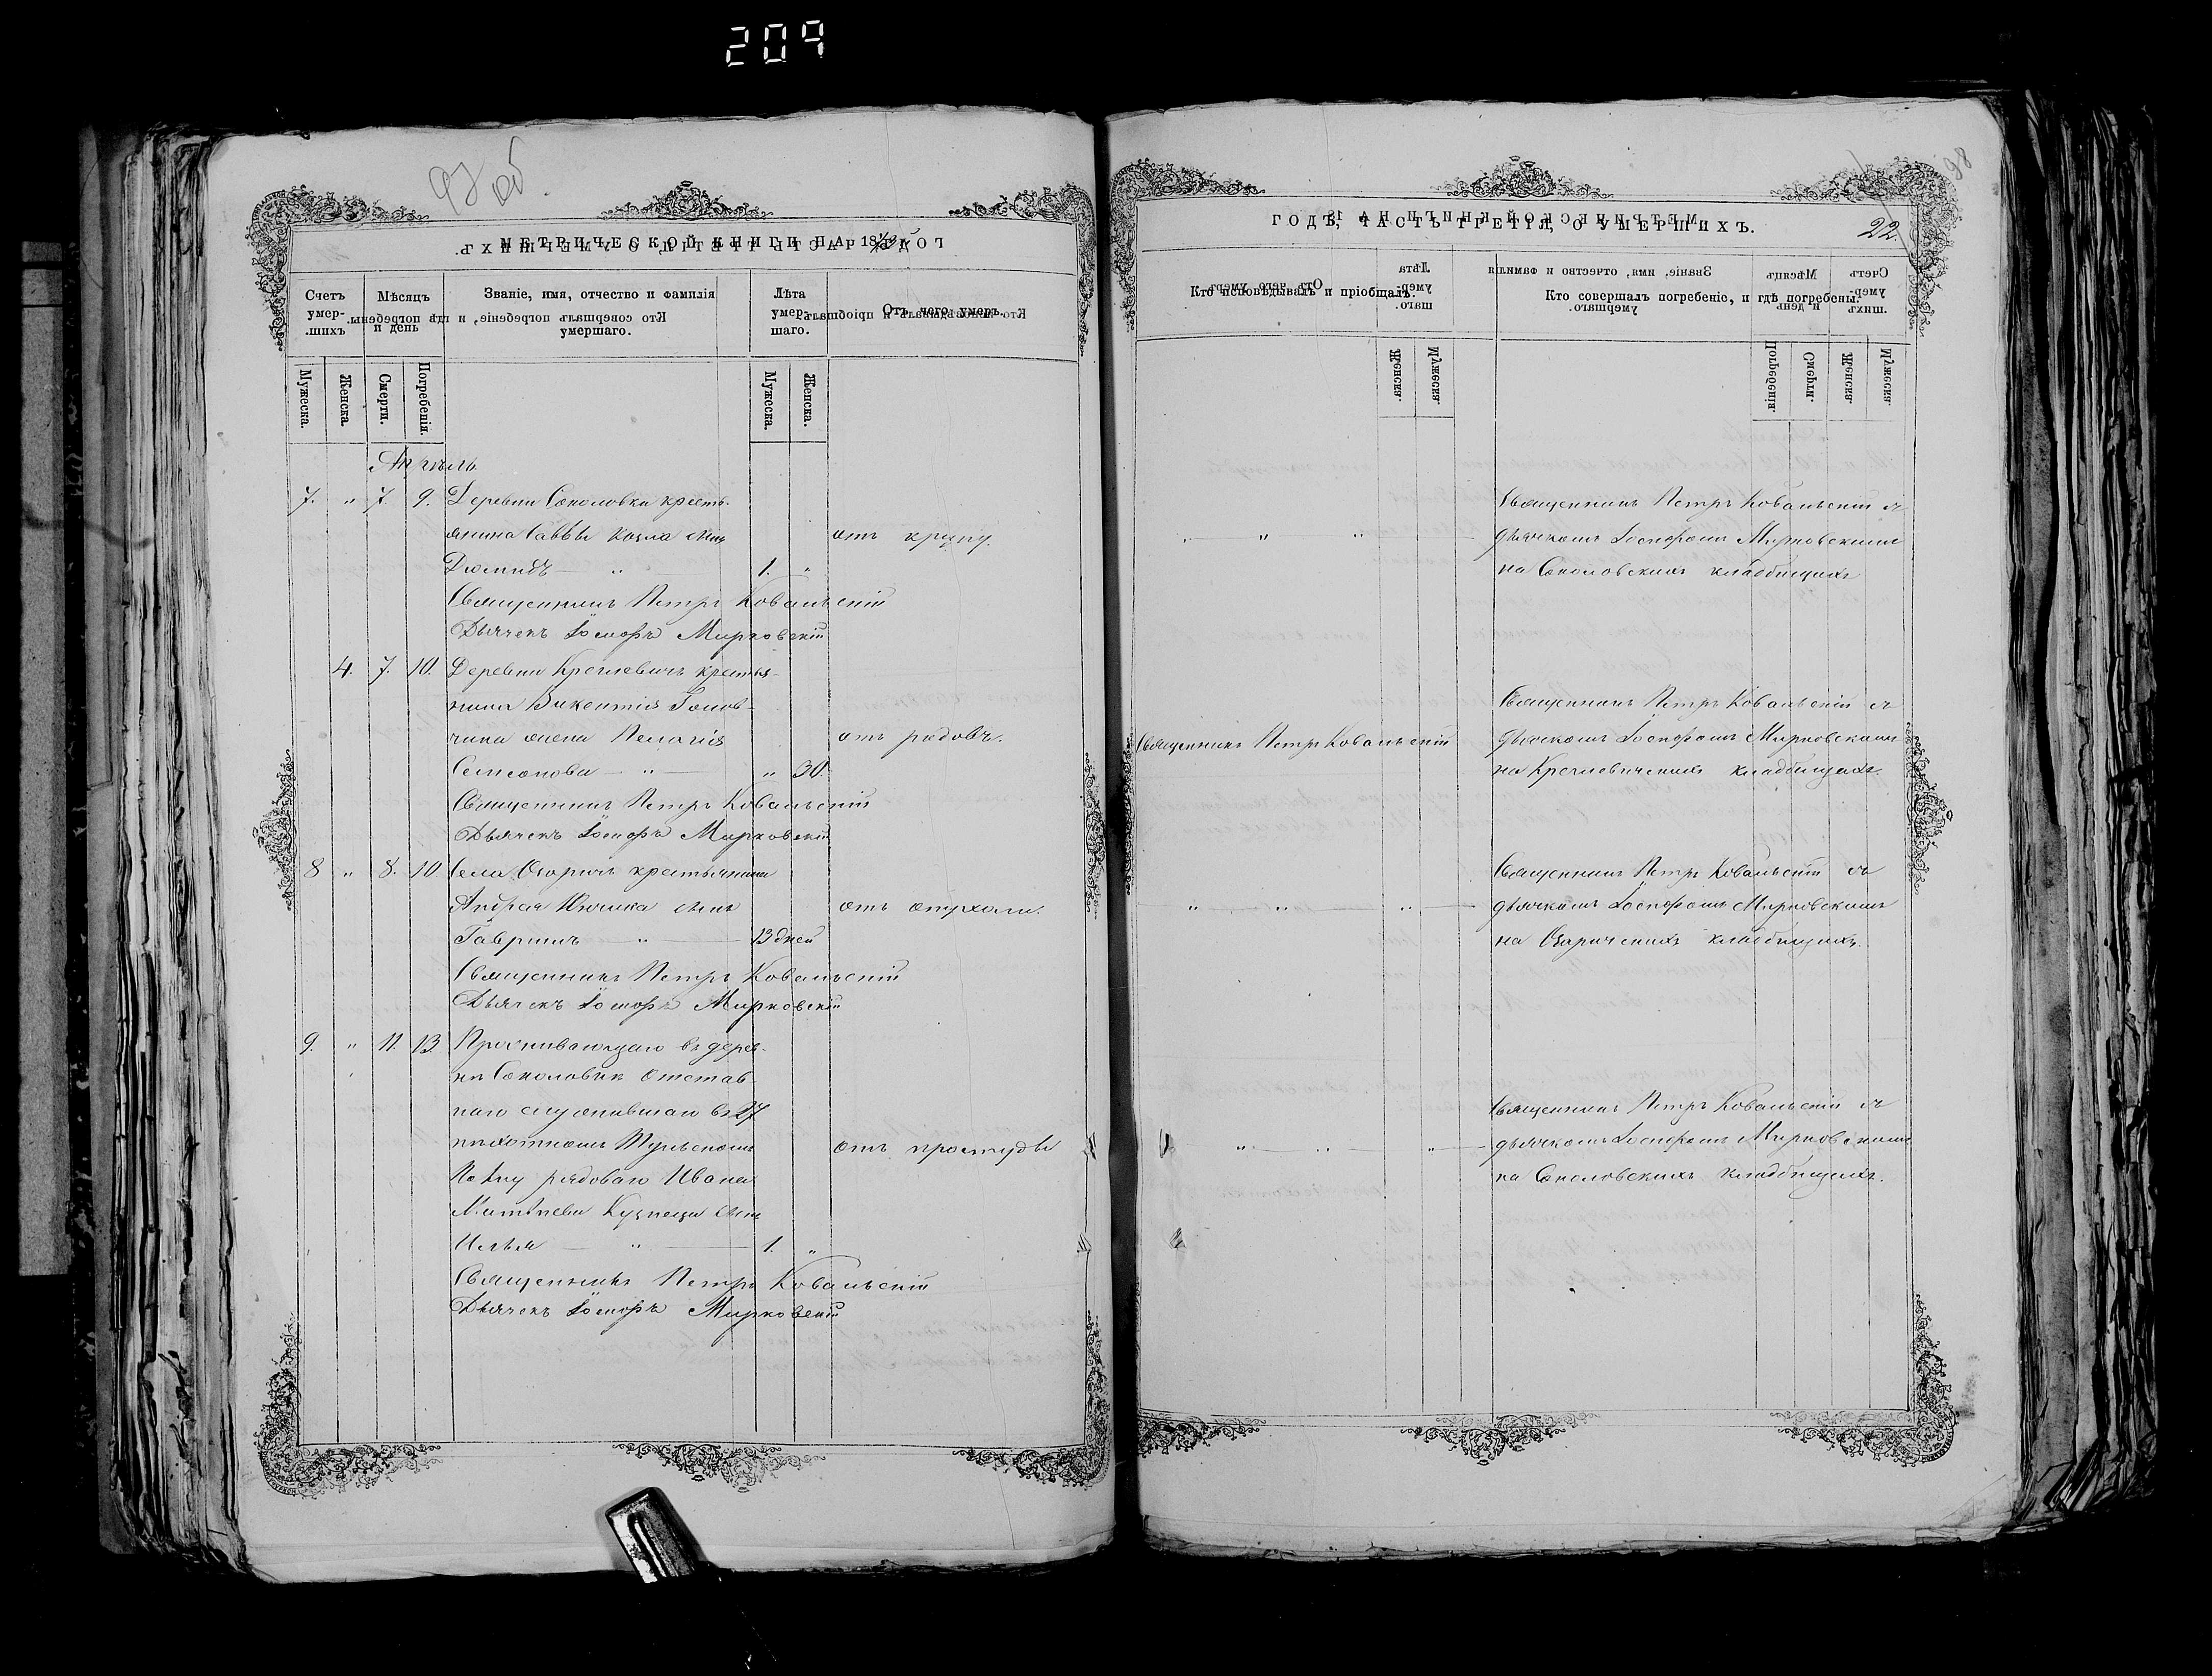 209
97 об
МЕТРИЧЕСКОЙ КНИГИ НА 18
Счетъ умер-шихъ.
Мѣсяцъ и день
Званіе, имя, отчество и фамилія умершаго.
Лѣта умер-шаго.
Отъ чего умеръ.
Мужеска. Женска. Смерти. Погребенія. Мужеска. Женска.
Апрѣль
7. " 7 9. Деревни Соколовки кресть-
янина Саввы Козла сынъ
отъ крупу.
Диомидъ — " — 1. "
Священникъ Петръ Ковальскій
Дьячекъ Іосифъ Мирковскій
4. 7. 10. Деревни Кремевичъ крестья-
нина Викентія Голов-
чика жена Пелагія
отъ родовъ.
Семенова — " — " 30.
Священникъ Петръ Ковальскій
Дьячекъ Іосифъ Мирковскій
8 " 8. 10 Села Озаричъ крестьянина
Андрея сынъ
отъ опухоли.
Гавріилъ — " — 13 дней
Священникъ Петръ Ковальскій
Дьячекъ Іосифъ Мирковскій
9. " 11. 13. Проживающаго въ дерев-
нѣ Соколовкѣ отстав-
наго служившаго въ 27
пѣхотномъ
отъ простуды
Полку рядоваго Ивана
Матвѣева Кузнеца сынъ
Илья — " — 1. "
Священникъ Петръ Ковальскій
Дьячекъ Іосифъ Мирковскій
98
ГОДЪ, ЧАСТЬ ТРЕТІЯ, О УМЕРШИХЪ.
22.
Кто исповѣдывалъ и пріобщалъ.
Кто совершалъ погребеніе, и гдѣ погребены.
Священникъ Петръ Ковальскій съ
" " " — дьячкомъ Іосифомъ Мирковскимъ
на Соколовскихъ кладбищахъ
Священникъ Петръ Ковальскій съ
Священникъ Петръ Ковальскій
дьячкомъ Іосифомъ Мирковскимъ
на Кремевическихъ кладбищахъ.
Священникъ Петръ Ковальскій съ
" " " — дьячкомъ Іосифомъ Мирковскимъ
на Озарическихъ кладбищахъ.
Священникъ Петръ Ковальскій съ
" — " — " — дьячкомъ Іосифомъ Мирковскимъ
на Соколовскихъ кладбищахъ.